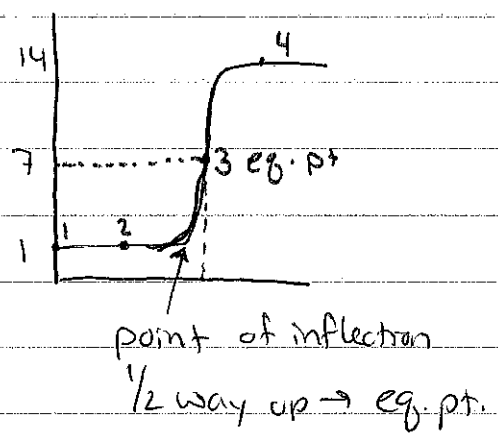 14
4
7
3 eq. pt
1
1
2
point of inflection
1/2 way up → eq. pt.